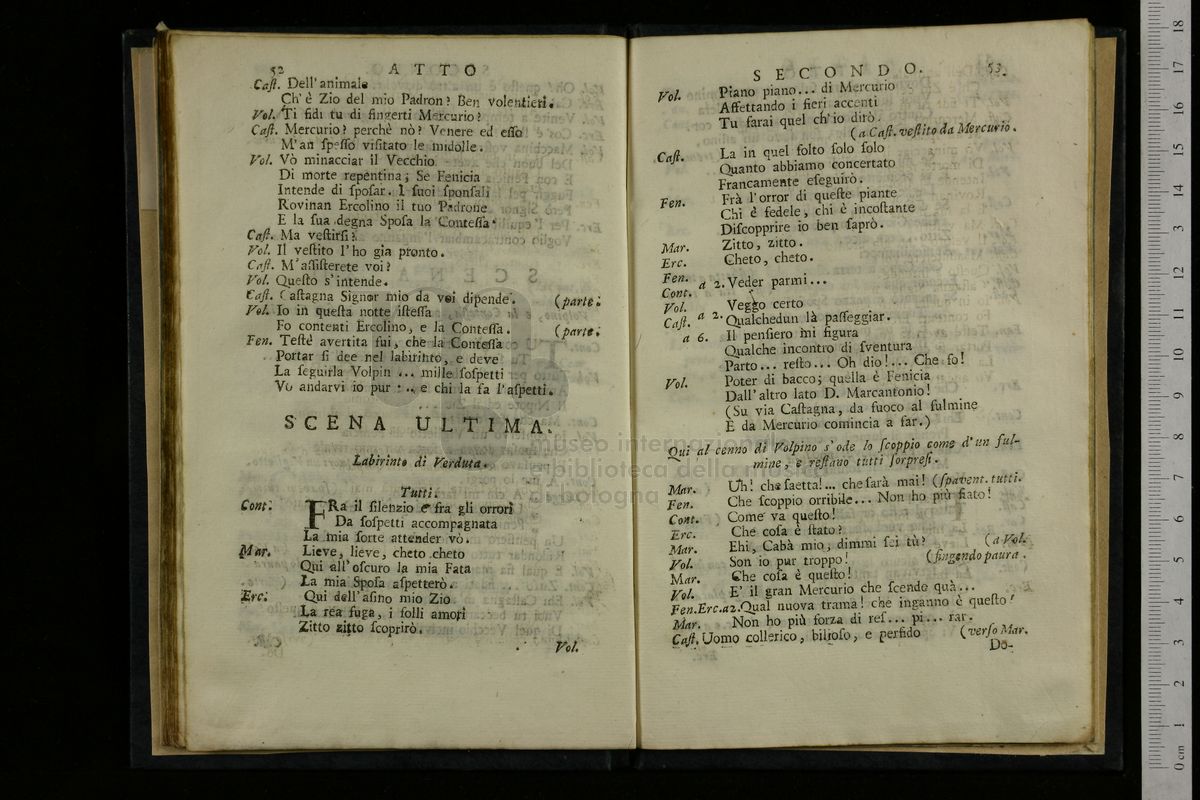 52 ATTO
Caſt. Dell'animale
Ch'è Zio del mio Padron? Ben volentieri.
Vol. Ti fidi tu di fingerti Mercurio?
Caſt. Mercurio? perchè nò? Venere ed eſſo
M'an ſpeſſo viſitato le midolle.
Vol. Vò minacciar il Vecchio
Di morte repentina; Se Fenicia
Intende di ſpoſar. I ſuoi ſponſali
Rovinan Ercolino il tuo Padrone
E la ſua degna Spoſa la Conteſſa.
Caſt. Ma veſtirſi?
Vol. Il veſtito l'ho gia pronto.
Caſt. M'aſſiſterete voi?
Vol. Queſto s'intende.
Caſt. Caſtagna Signor mio da voi dipende. (parte.
Vol. Io in queſta notte iſteſſa
Fo contenti Ercolino, e la Conteſſa. (parte.
Fen. Teſtè avertita fui, che la Conteſſa
Portar ſi dee nel labirinto, e deve
La ſeguirla Volpin ... mille ſoſpetti
Vo andarvi io pur ... e chi la fa l'aſpetti.
SCENA ULTIMA.
Labirinto di Verdura.
Tutti.
Cont. FRa il ſilenzio e fra gli orrori
Da ſoſpetti accompagnata
La mia ſorte attender vò.
Mar. Lieve, lieve, cheto cheto
Qui all'oſcuro la mia Fata
La mia Spoſa aſpetterò.
Erc. Qui dell'aſino mio Zio
La rea fuga, i folli amori
Zitto zitto ſcoprirò.
Vol.
SECONDO. 53.
Vol. Piano piano... di Mercurio
Affettando i fieri accenti
Tu farai quel ch'io dirò.
(a Caſt. veſtito da Mercurio.
Caſt. La in quel folto ſolo ſolo
Quanto abbiamo concertato
Francamente eſeguirò.
Fen. Frà l'orror di queſte piante
Chi è fedele, chi è incoſtante
Diſcopprire io ben ſaprò.
Mar. Zitto, zitto.
Erc. Cheto, cheto.
Fen. Cont. a 2. Veder parmi...
Vol. Veggo certo
Caſt. a 2. Qualchedun là paſſeggiar.
a 6. Il penſiero mi figura
Qualche incontro di ſventura
Parto... reſto... Oh dio!... Che fo!
Vol. Poter di bacco; quella è Fenicia
Dall'altro lato D. Marcantonio!
(Su via Caſtagna, da fuoco al fulmine
E da Mercurio comincia a far.)
Qui al cenno di Volpino s'ode lo ſcoppio come d'un ful-
mine, e reſtano tutti ſorpreſi.
Mar. Uh! che ſaetta!... che ſarà mai! (ſpavent. tutti.
Fen. Che ſcoppio orribile... Non ho più fiato!
Cont. Come va queſto!
Erc. Che coſa è ſtato?
Mar. Ehi, Cabà mio, dimmi ſei tù? (a Vol.
Vol. Son io pur troppo! (fingendo paura.
Mar. Che coſa è queſto!
Vol. E' il gran Mercurio che ſcende quà...
Fen. Erc. a2. Qual nuova trama! che inganno è queſto!
Mar. Non ho più forza di reſ... pi... rar.
Caſt. Uomo collerico, bilioſo, e perfido (verſo Mar.
Do-
museo internazionale
e biblioteca della musica
di bologna
0 cm 1 2 3 4 5 6 7 8 9 10 11 12 13 14 15 16 17 18